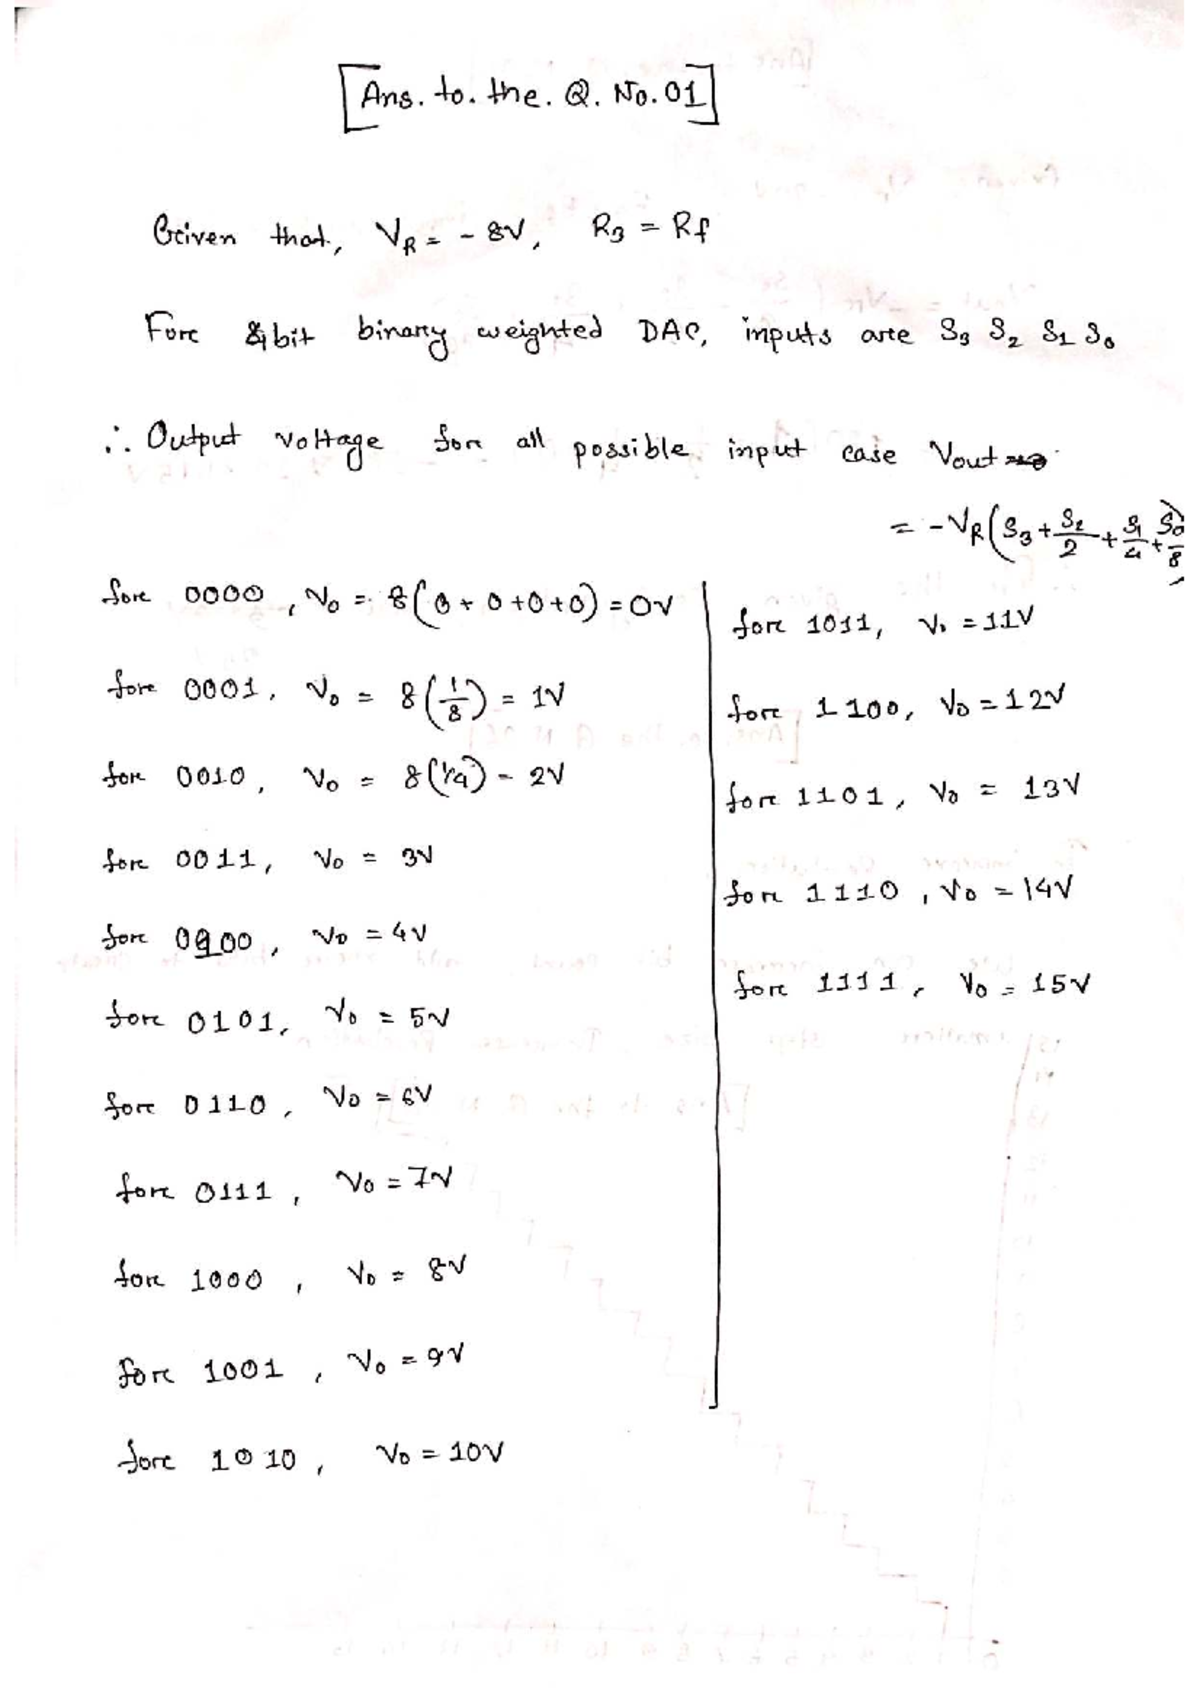 [Ans. to. the. Q. No. 01]
Given that, V_R = - 8V, R3 = Rf
Fore 4 bit binary weighted DAC, inputs are S3 S2 S1 S0
∴ Output voltage fore all possible input case Vout
= -V_R (S3 + S2/2 + S1/4 + S0/8)
fore 0000, Vo = 8(0 + 0 + 0 + 0) = 0V
fore 0001, Vo = 8(1/8) = 1V
fore 0010, Vo = 8(1/4) = 2V
fore 0011, Vo = 3V
fore 0100, Vo = 4V
fore 0101, Vo = 5V
fore 0110, Vo = 6V
fore 0111, Vo = 7V
fore 1000, Vo = 8V
fore 1001, Vo = 9V
fore 1010, Vo = 10V
fore 1011, Vo = 11V
fore 1100, Vo = 12V
fore 1101, Vo = 13V
fore 1110, Vo = 14V
fore 1111, Vo = 15V